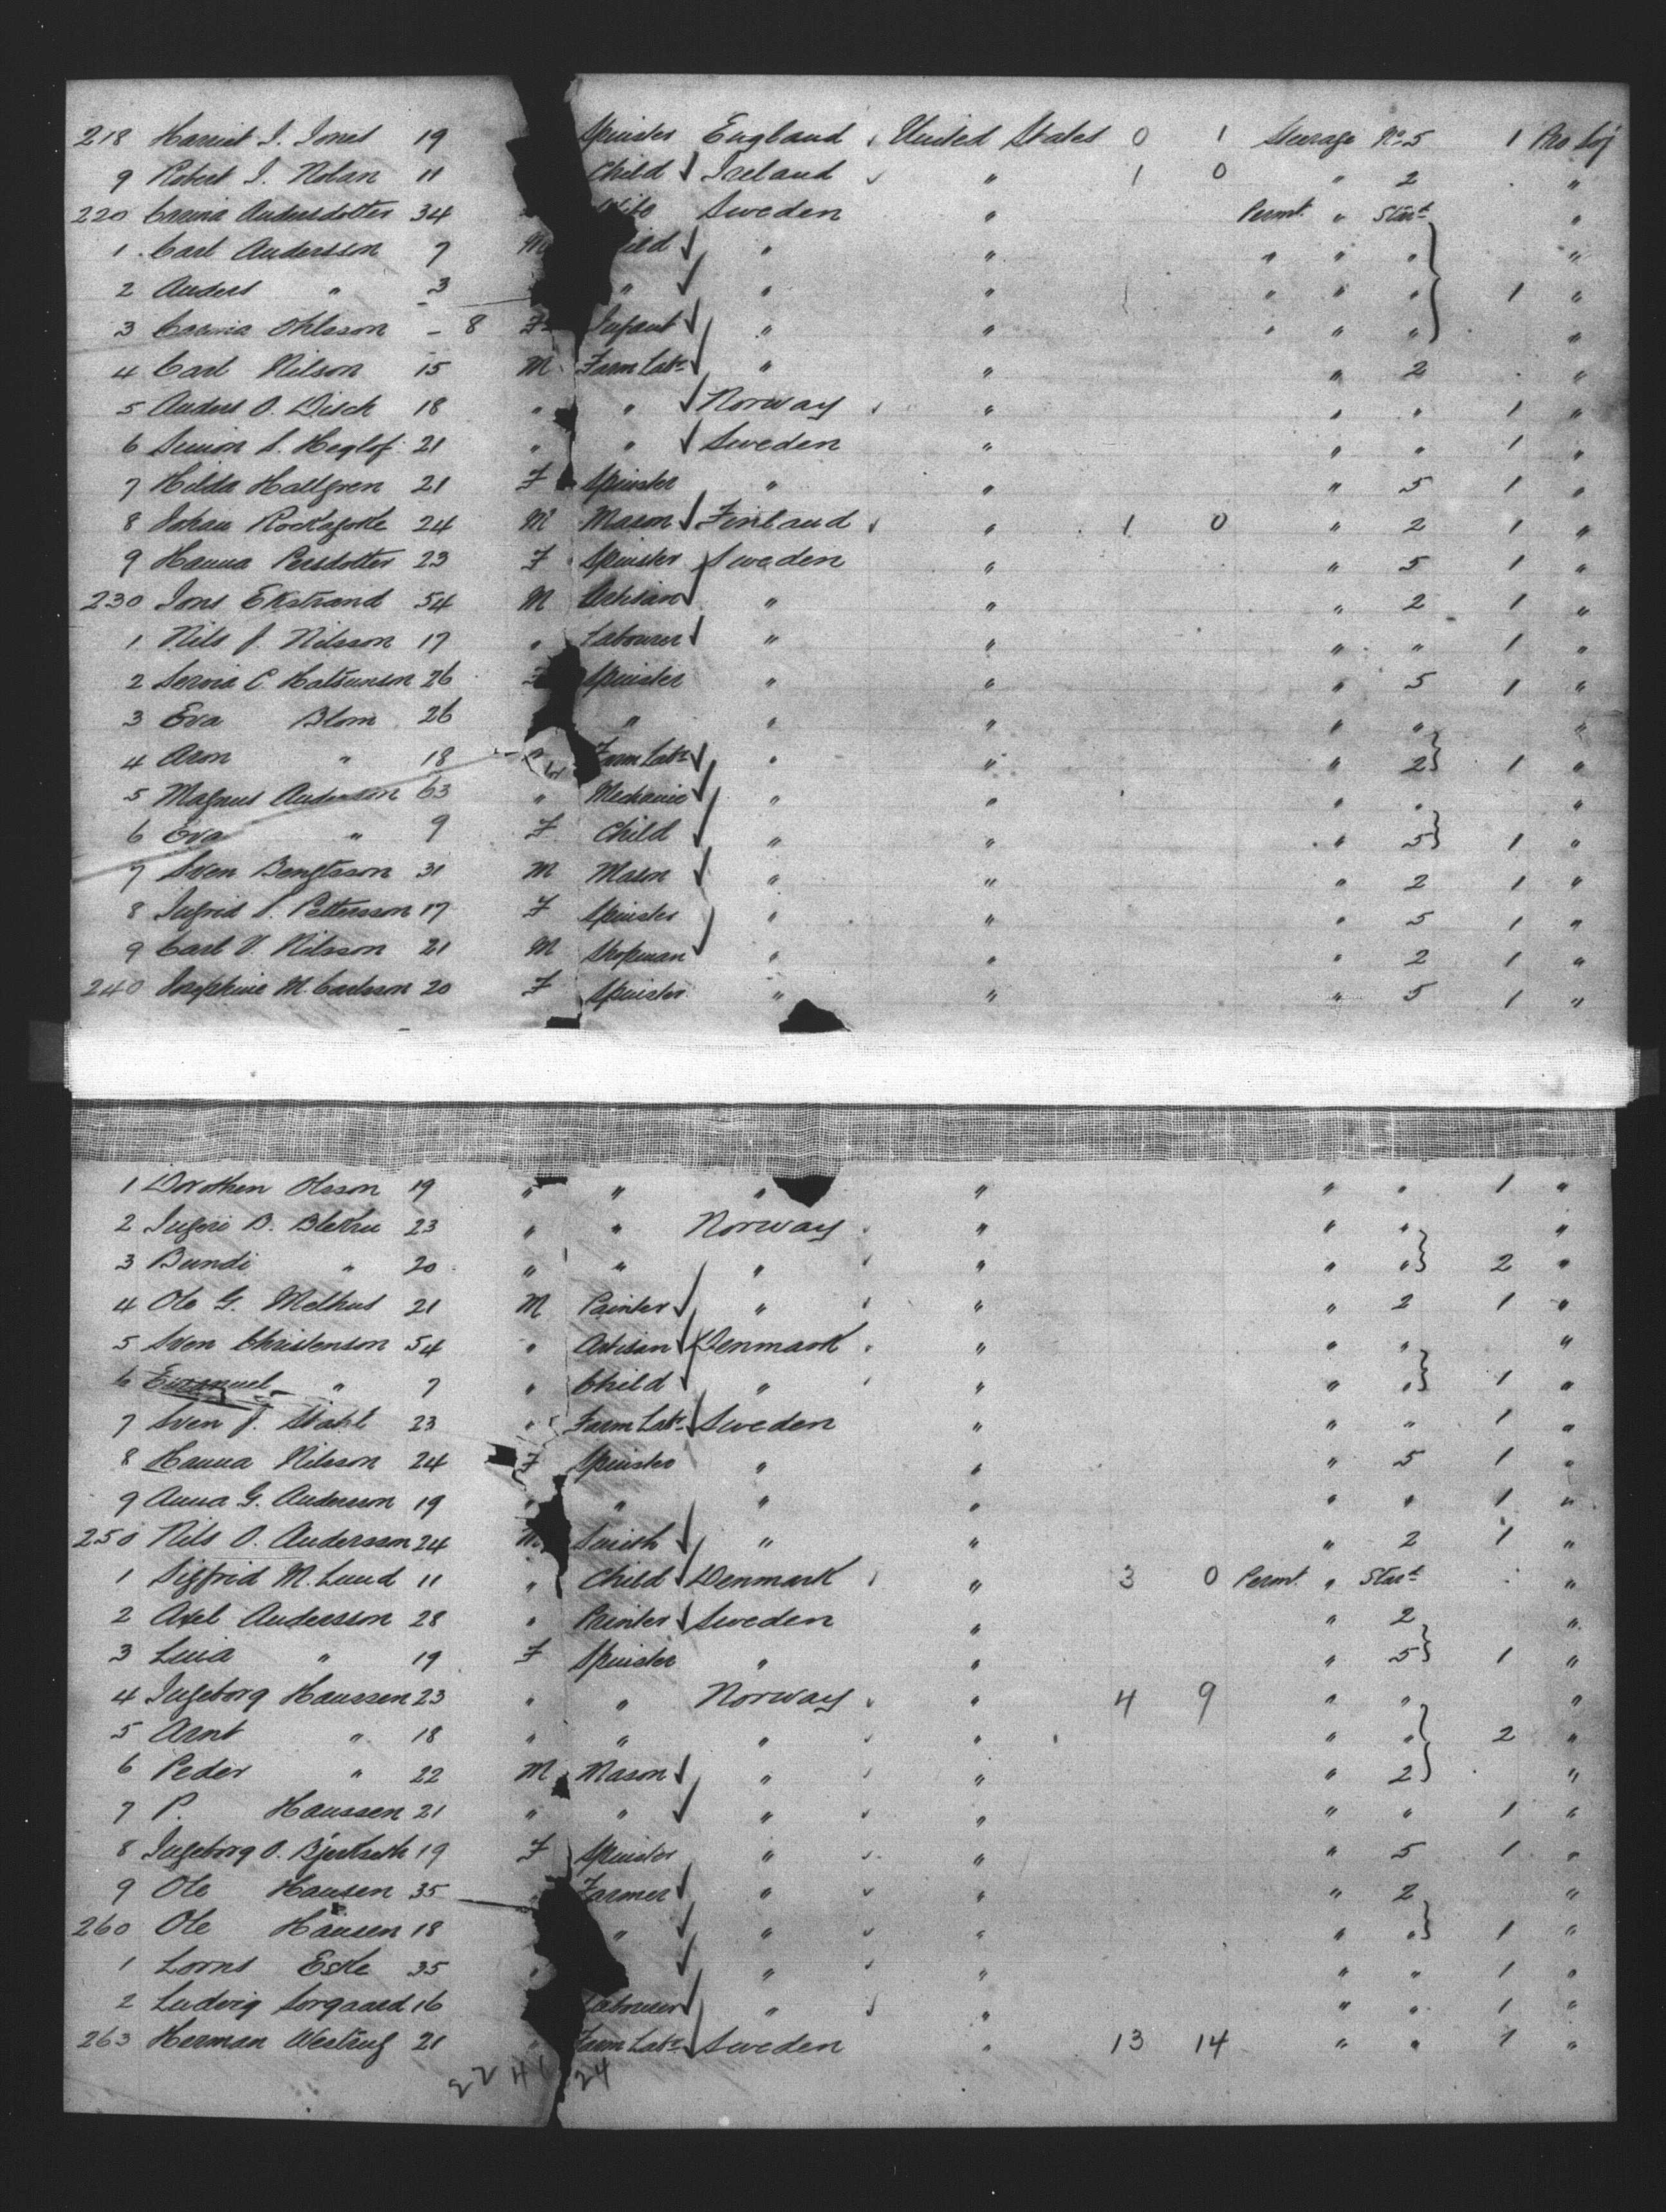 218 Harriet I. Jones 19 Spinster England United States 0 1 Steerage No. 5 1 Pro Soj
9 Robert I. Nolan 11 Child Ireland " 1 0 " 2 "
220 Andersdotter 34 Wife Sweden " Permt. " Star.t "
1 Carl Andersson 7 M Child " " " " " "
2 Anders " 3 " " " " " " 1 "
3 Ohlsson - 8 F Infant " " " " " "
4 Carl Nilson 15 M Farm Labr " " " 2 "
5 Anders O. Disch 18 " " Norway " " " 1 "
6 S. Heglof 21 " " Sweden " " " 1 "
7 Hilda Hallgren 21 F Spinster " " " 5 1 "
8 Johan 24 M Mason Finland " 1 0 " 2 1 "
9 Hanna Persdotter 23 F Spinster Sweden " " 5 1 "
230 Jons Ekstrand 54 M Artisan " " " 2 1 "
1 Nils J. Nilsson 17 " Labourer " " " " 1 "
2 C. 26 F Spinster " " " 5 1 "
3 Eva Blom 26 " " " " " "
4 Aron " 18 Farm Labr " " " 2 1 "
5 Magnus Anderson 63 " Mechanic " " " " "
6 Eva " 9 F Child " " " 5 1 "
7 Sven Bengtsson 31 M Mason " " " 2 1 "
8 Ingrid S. Pettersson 17 F Spinster " " " 5 1 "
9 Carl V. Nilsson 21 M Shopman " " " 2 1 "
240 Josephine M. Carlsson 20 F Spinster " " " 5 1 "
1 Dorothen Olsson 19 " " " " " " 1 "
2 B. 23 " " Norway " " " "
3 Bundi " 20 " " " " " " 2 "
4 Ole G. Melhus 21 M Painter " " " 2 1 "
5 Sven Christenson 54 " Artisan Denmark " " " "
6 Emanuel " 7 " Child " " " " 1 "
7 Sven J. Stahl 23 " Farm Labr Sweden " " " 1 "
8 Hanna Nilsson 24 F Spinster " " " 5 1 "
9 Anna G. Anderson 19 " " " " " " 1 "
250 Nils O. Andersson 24 M Smith " " " 2 1 "
1 Sigfrid M. Lund 11 " Child Denmark " 3 0 Permt. " Star.t "
2 Axel Andersson 28 " Printer Sweden " " 2 "
3 " 19 F Spinster " " " 5 1 "
4 Ingeborg Haussen 23 " " Norway " 4 9 " " "
5 Arnt " 18 " " " " " " 2 "
6 Peder " 22 M Mason " " " 2 "
7 P. Haussen 21 " " " " " " 1 "
8 Ingeborg O. 19 F Spinster " " " 5 1 "
9 Ole Hansen 35 Farmer " " " 2 "
260 Ole Hansen 18 " " " " " 1 "
1 Lorns Eske 35 " " " " " 1 "
2 Ludvig Sorgaard 16 Labourer " " " " 1 "
263 Herman 21 " Farm Labr Sweden " 13 14 " " 1 "
22 41 24